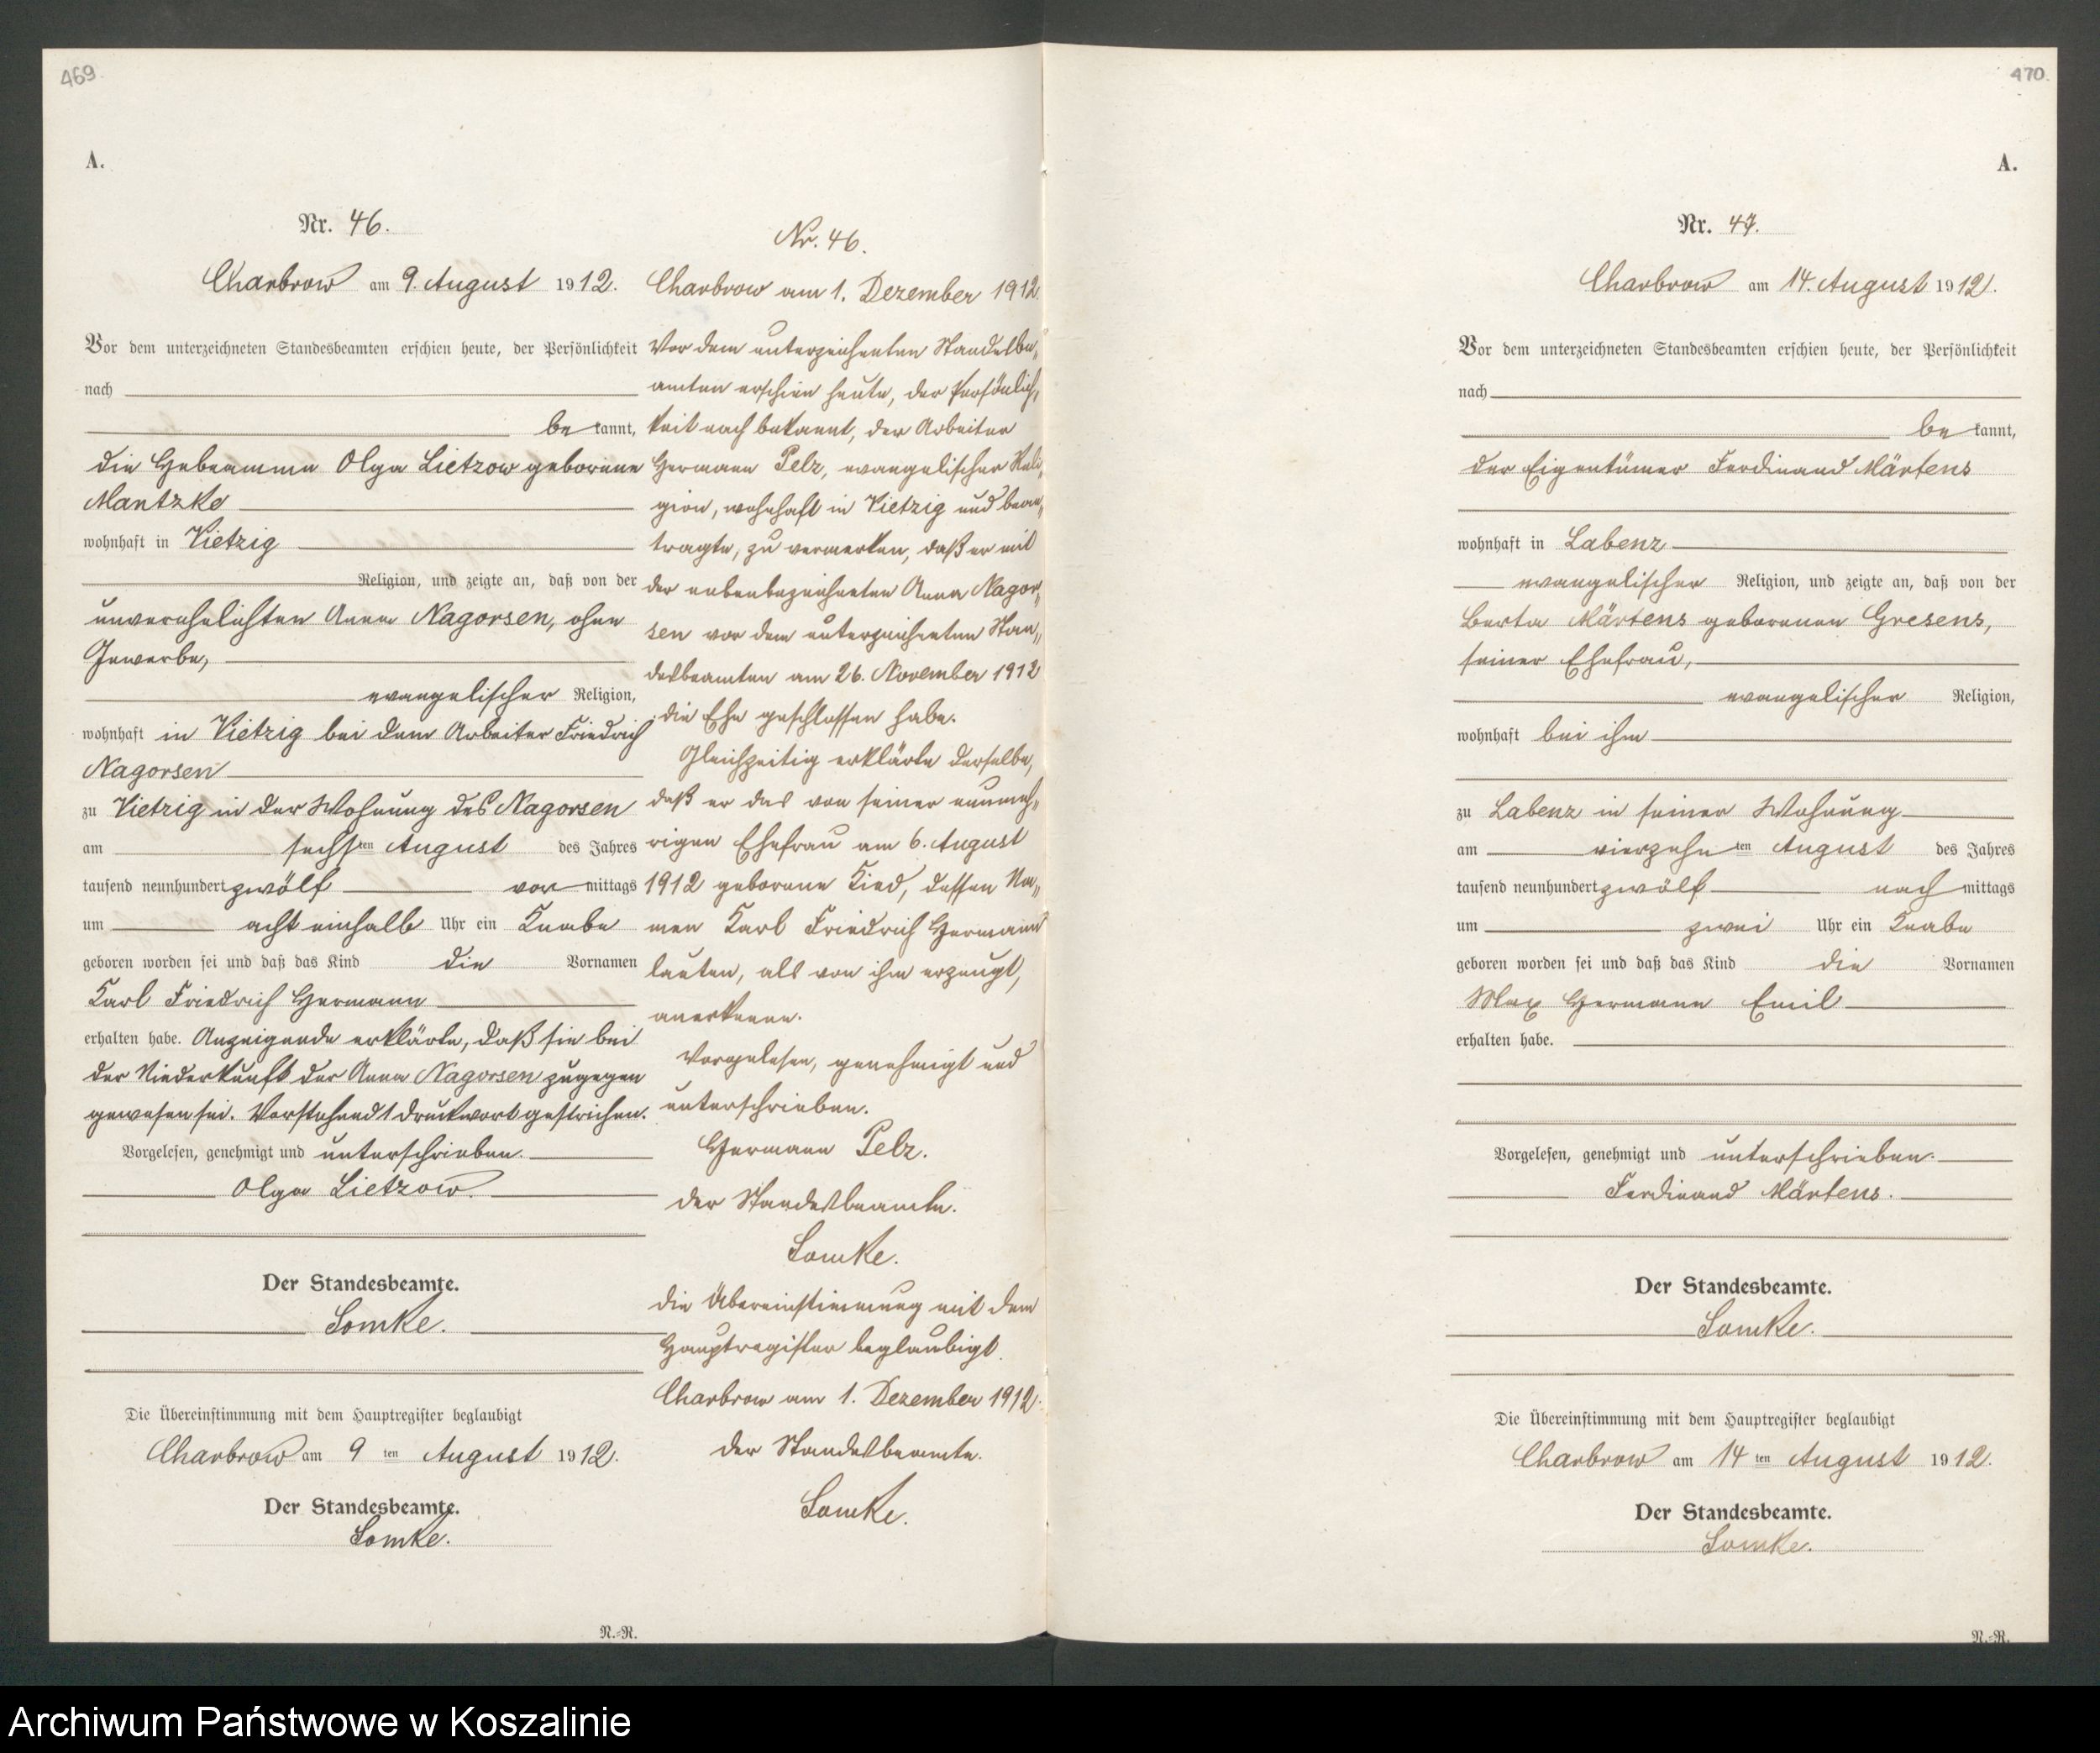 469
A.
Nr. 46.
Charbrow am 9. August 1912.
Vor dem unterzeichneten Standesbeamten erschien heute, der Persönlichkeit
nach
be kannt,
die Hebeamme Olga Lietzow geborene
Mantzke
wohnhaft in Vietzig
Religion, und zeigte an, daß von der
unverehelichten Anna Nagorsen, ohne
Gewerbe,
evangelischer Religion,
wohnhaft in Vietzig bei dem Arbeiter Friedrich
Nagorsen
zu Vietzig in der Wohnung des Nagorsen
am sechsten August des Jahres
tausend neunhundert zwölf vor mittags
um acht einhalb Uhr ein Knabe
geboren worden sei und daß das Kind die Vornamen
Karl Friedrich Hermann
erhalten habe. Anzeigende erklärte, daß sie bei
der Niederkunft der Anna Nagorsen zugegen
gewesen sei. Vorstehend 1 Druckwort gestrichen.
Vorgelesen, genehmigt und unterschrieben.
Olga Lietzow.
Der Standesbeamte.
Lomke.
Die Übereinstimmung mit dem Hauptregister beglaubigt
Charbrow am 9 ten August 1912.
Der Standesbeamte.
Lomke.
N.-R.
Nr. 46.
Charbrow am 1. Dezember 1912.
Vor dem unterzeichneten Standesbe„
amten erschien heute, der Persönlich„
keit nach bekannt, der Arbeiter
Hermann Pelz, evangelischer Reli„
gion, wohnhaft in Vietzig und bean„
tragte, zu vermerken, daß er mit
der nebenbezeichneten Anna Nagor„
sen vor dem unterzeichneten Stan„
desbeamten am 26. November 1912
die Ehe geschlossen habe.
Gleichzeitig erklärte derselbe,
daß er das von seiner nunmeh„
rigen Ehefrau am 6. August
1912 geborene Kind, dessen Na„
men Karl Friedrich Hermann
lauten, als von ihm erzeugt,
anerkenne.
Vorgelesen, genehmigt und
unterschrieben.
Hermann Pelz.
Der Standesbeamte.
Lomke.
Die Übereinstimmung mit dem
Hauptregister beglaubigt.
Charbrow am 1. Dezember 1912.
Der Standesbeamte.
Lomke.
470.
A.
Nr. 47.
Charbrow am 14. August 1912.
Vor dem unterzeichneten Standesbeamten erschien heute, der Persönlichkeit
nach
be kannt,
der Eigentümer Ferdinand Märtens
wohnhaft in Labenz
evangelischer Religion, und zeigte an, daß von der
Berta Märtens geborenen Gresens,
seiner Ehefrau,
evangelischer Religion,
wohnhaft bei ihm
zu Labenz in seiner Wohnung
am vierzehn ten August des Jahres
tausend neunhundert zwölf nach mittags
um zwei Uhr ein Knabe
geboren worden sei und daß das Kind die Vornamen
Max Hermann Emil
erhalten habe.
Vorgelesen, genehmigt und unterschrieben.
Ferdinand Märtens.
Der Standesbeamte.
Lomke.
Die Übereinstimmung mit dem Hauptregister beglaubigt
Charbrow am 14 ten August 1912.
Der Standesbeamte.
Lomke.
N.-R.
Archiwum Państwowe w Koszalinie